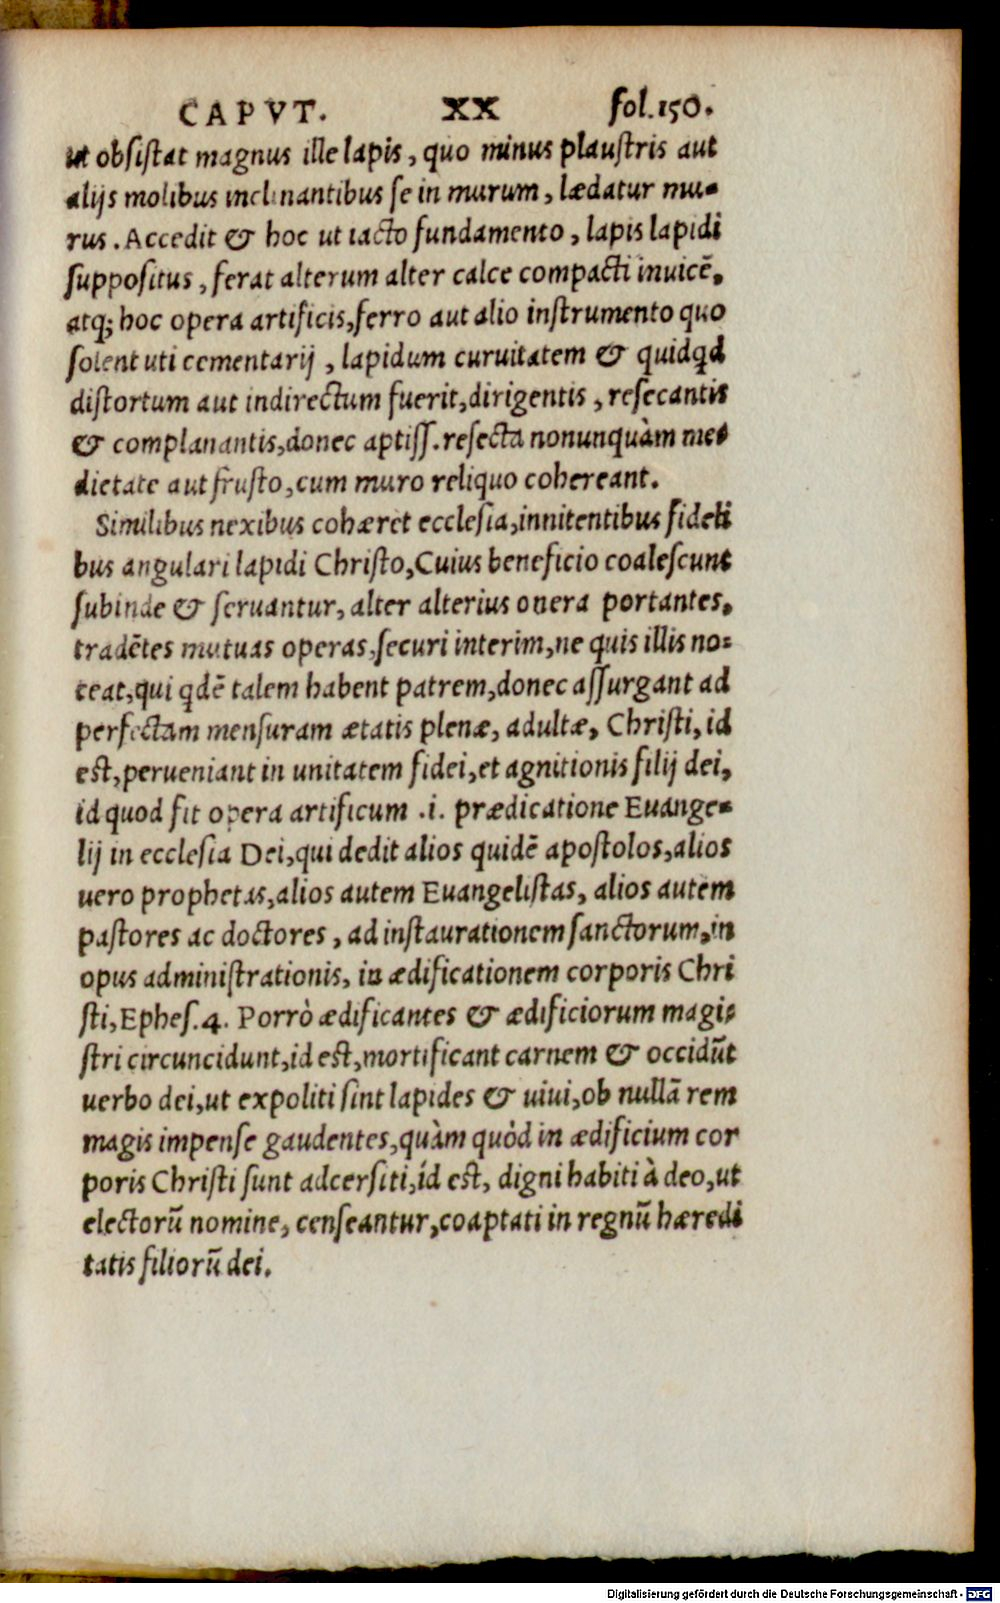 CAPVT. XX fol.150.
ut obsistat magnus ille lapis, quo minus plaustris aut
alijs molibus inclinantibus se in murum, lædatur mu-
rus. Accedit & hoc ut iacto fundamento, lapis lapidi
suppositus, ferat alterum alter calce compacti inuicē.
atq; hoc opera artificis, ferro aut alio instrumento quo
solent uti cementarij, lapidum curuitatem & quidqd
distortum aut indirectum fuerit, dirigentis, resecantis
& complanantis, donec aptiss. resecta nonunquàm me-
dietate aut frusto, cum muro reliquo cohereant.
Similibus nexibus cohæret ecclesia, innitentibus fideli
bus angulari lapidi Christo, Cuius beneficio coalescunt
subinde & seruantur, alter alterius onera portantes.
tradētes mutuas operas, securi interim, ne quis illis no-
ceat, qui qdē talem habent patrem, donec assurgant ad
perfectam mensuram ætatis plenæ, adultæ, Christi, id
est, perueniant in unitatem fidei, et agnitionis filij dei,
id quod fit opera artificum .i. prædicatione Euange-
lij in ecclesia Dei, qui dedit alios quidē apostolos, alios
uero prophetas, alios autem Euangelistas, alios autem
pastores ac doctores, ad instaurationem sanctorum, in
opus administrationis, in ædificationem corporis Chri
sti, Ephes.4. Porrò ædificantes & ædificiorum magi-
stri circuncidunt, id est, mortificant carnem & occidūt
uerbo dei, ut expoliti sint lapides & uiui, ob nullā rem
magis impense gaudentes, quàm quòd in ædificium cor
poris Christi sunt adcersiti, id est, digni habiti à deo, ut
electorū nomine, censeantur, coaptati in regnū hæredi
tatis filiorū dei.
Digitalisierung gefördert durch die Deutsche Forschungsgemeinschaft - DFG